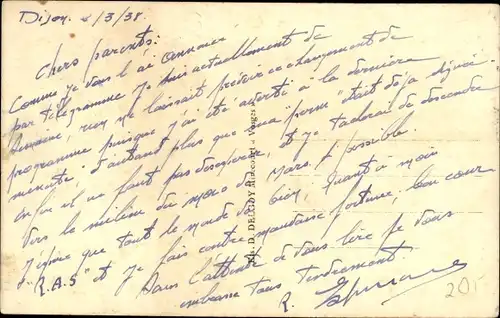 Dijon. 2/3/38.
Chers parents:
Comme je vous l'ai annoncé
par télégramme je suis actuellement de
semaine, rien ne laissait prévoir ce changement de
programme puisque j'ai été averti à la dernière
minute, d'autant plus que ma "perm" était déjà signée.
Enfin il ne faut pas désespérer, et je tacherai de descendre
vers le milieu du mois de Mars si possible.
J'espère que tout le monde va bien, quant à moi
"R.A.S" et je fais contre mauvaise fortune, bon cœur
Dans l'attente de vous lire je vous
embrasse tous tendrement.
R.
20F
D. DELBOY, Mirecourt - Vosges